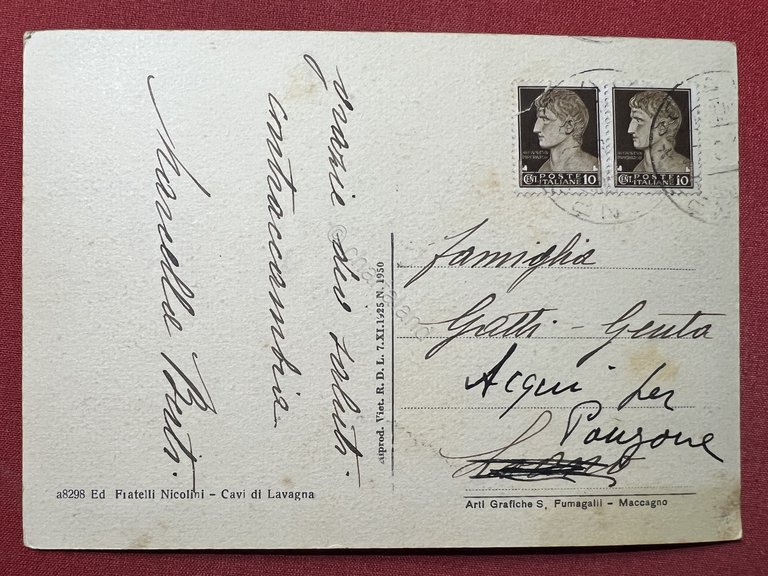 grazie dei saluti
contraccambia
Marcella
POSTE
ITALIANE
CENT. 10
POSTE
ITALIANE
CENT. 10
Famiglia
Gatti - Genta
Acqui per
Ponzone
Riprod. Viet. R. D. L. 7.XI.1925.N. 1950
a8298 Ed Fratelli Nicolini - Cavi di Lavagna
Arti Grafiche S. Fumagalli - Maccagno